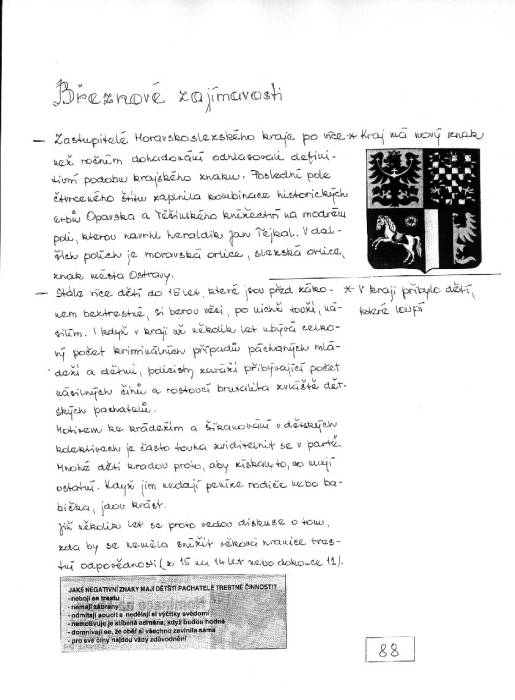 Březnové zajímavosti
— Zastupitelé Moravskoslezského kraje po více
než ročním dohadování odhlasovali defini-
tivní podobu krajského znaku. Poslední pole
čtvrceného štítu zaplnila kombinace historických
erbů Opavska a Těšínského knížectví na modrém
poli, kterou navrhl heraldik Jan Tejkal. V dal-
ších polích je moravská orlice, slezská orlice,
znak města Ostravy.
* Kraj má nový znak
— Stále více dětí do 15 let, které jsou před záko-
nem beztrestné, si berou věci, po nichž touží, ná-
silím. I když v kraji už několik let ubývá celko-
vý počet kriminálních případů páchaných mlá-
deží a dětmi, policisty zaráží přibývající počet
násilných činů a rostoucí brutalita zvláště dět-
ských pachatelů.
Motivem ke krádežím a šikanování v dětských
kolektivech je často touha zviditelnit se v partě.
Mnohé děti kradou proto, aby získaly to, co mají
ostatní. Když jim nedají peníze rodiče nebo ba-
bička, jdou krást.
Již několik let se proto vedou diskuse o tom,
zda by se neměla snížit věková hranice tres-
tní odpovědnosti (z 15 na 14 let nebo dokonce 12).
* V kraji přibylo dětí,
které loupí
JAKÉ NEGATIVNÍ ZNAKY MAJÍ DĚTŠTÍ PACHATELÉ TRESTNÉ ČINNOSTI?
- nebojí se trestu
- nemají zábrany
- odmítají soucit a nedělají si výčitky svědomí
- nemotivuje je slíbená odměna, když budou hodné
- domnívají se, že oběť si všechno zavinila sama
- pro své činy najdou vždy zdůvodnění
88